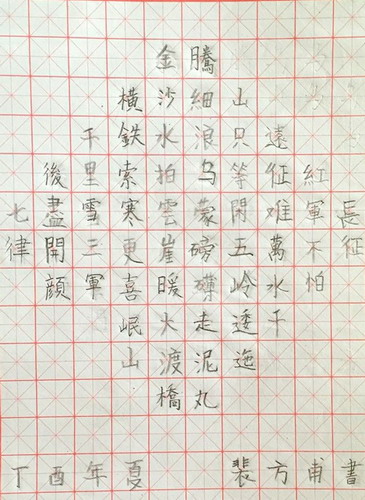 長征
紅軍不怕
遠征难萬水千
山只等閑五岭逶迤
騰細浪乌蒙磅礴走泥丸
金沙水拍雲崖暖大渡橋
橫鉄索寒更喜岷山
千里雪三軍
後盡開顔
七律
丁酉年夏 裴方甫書